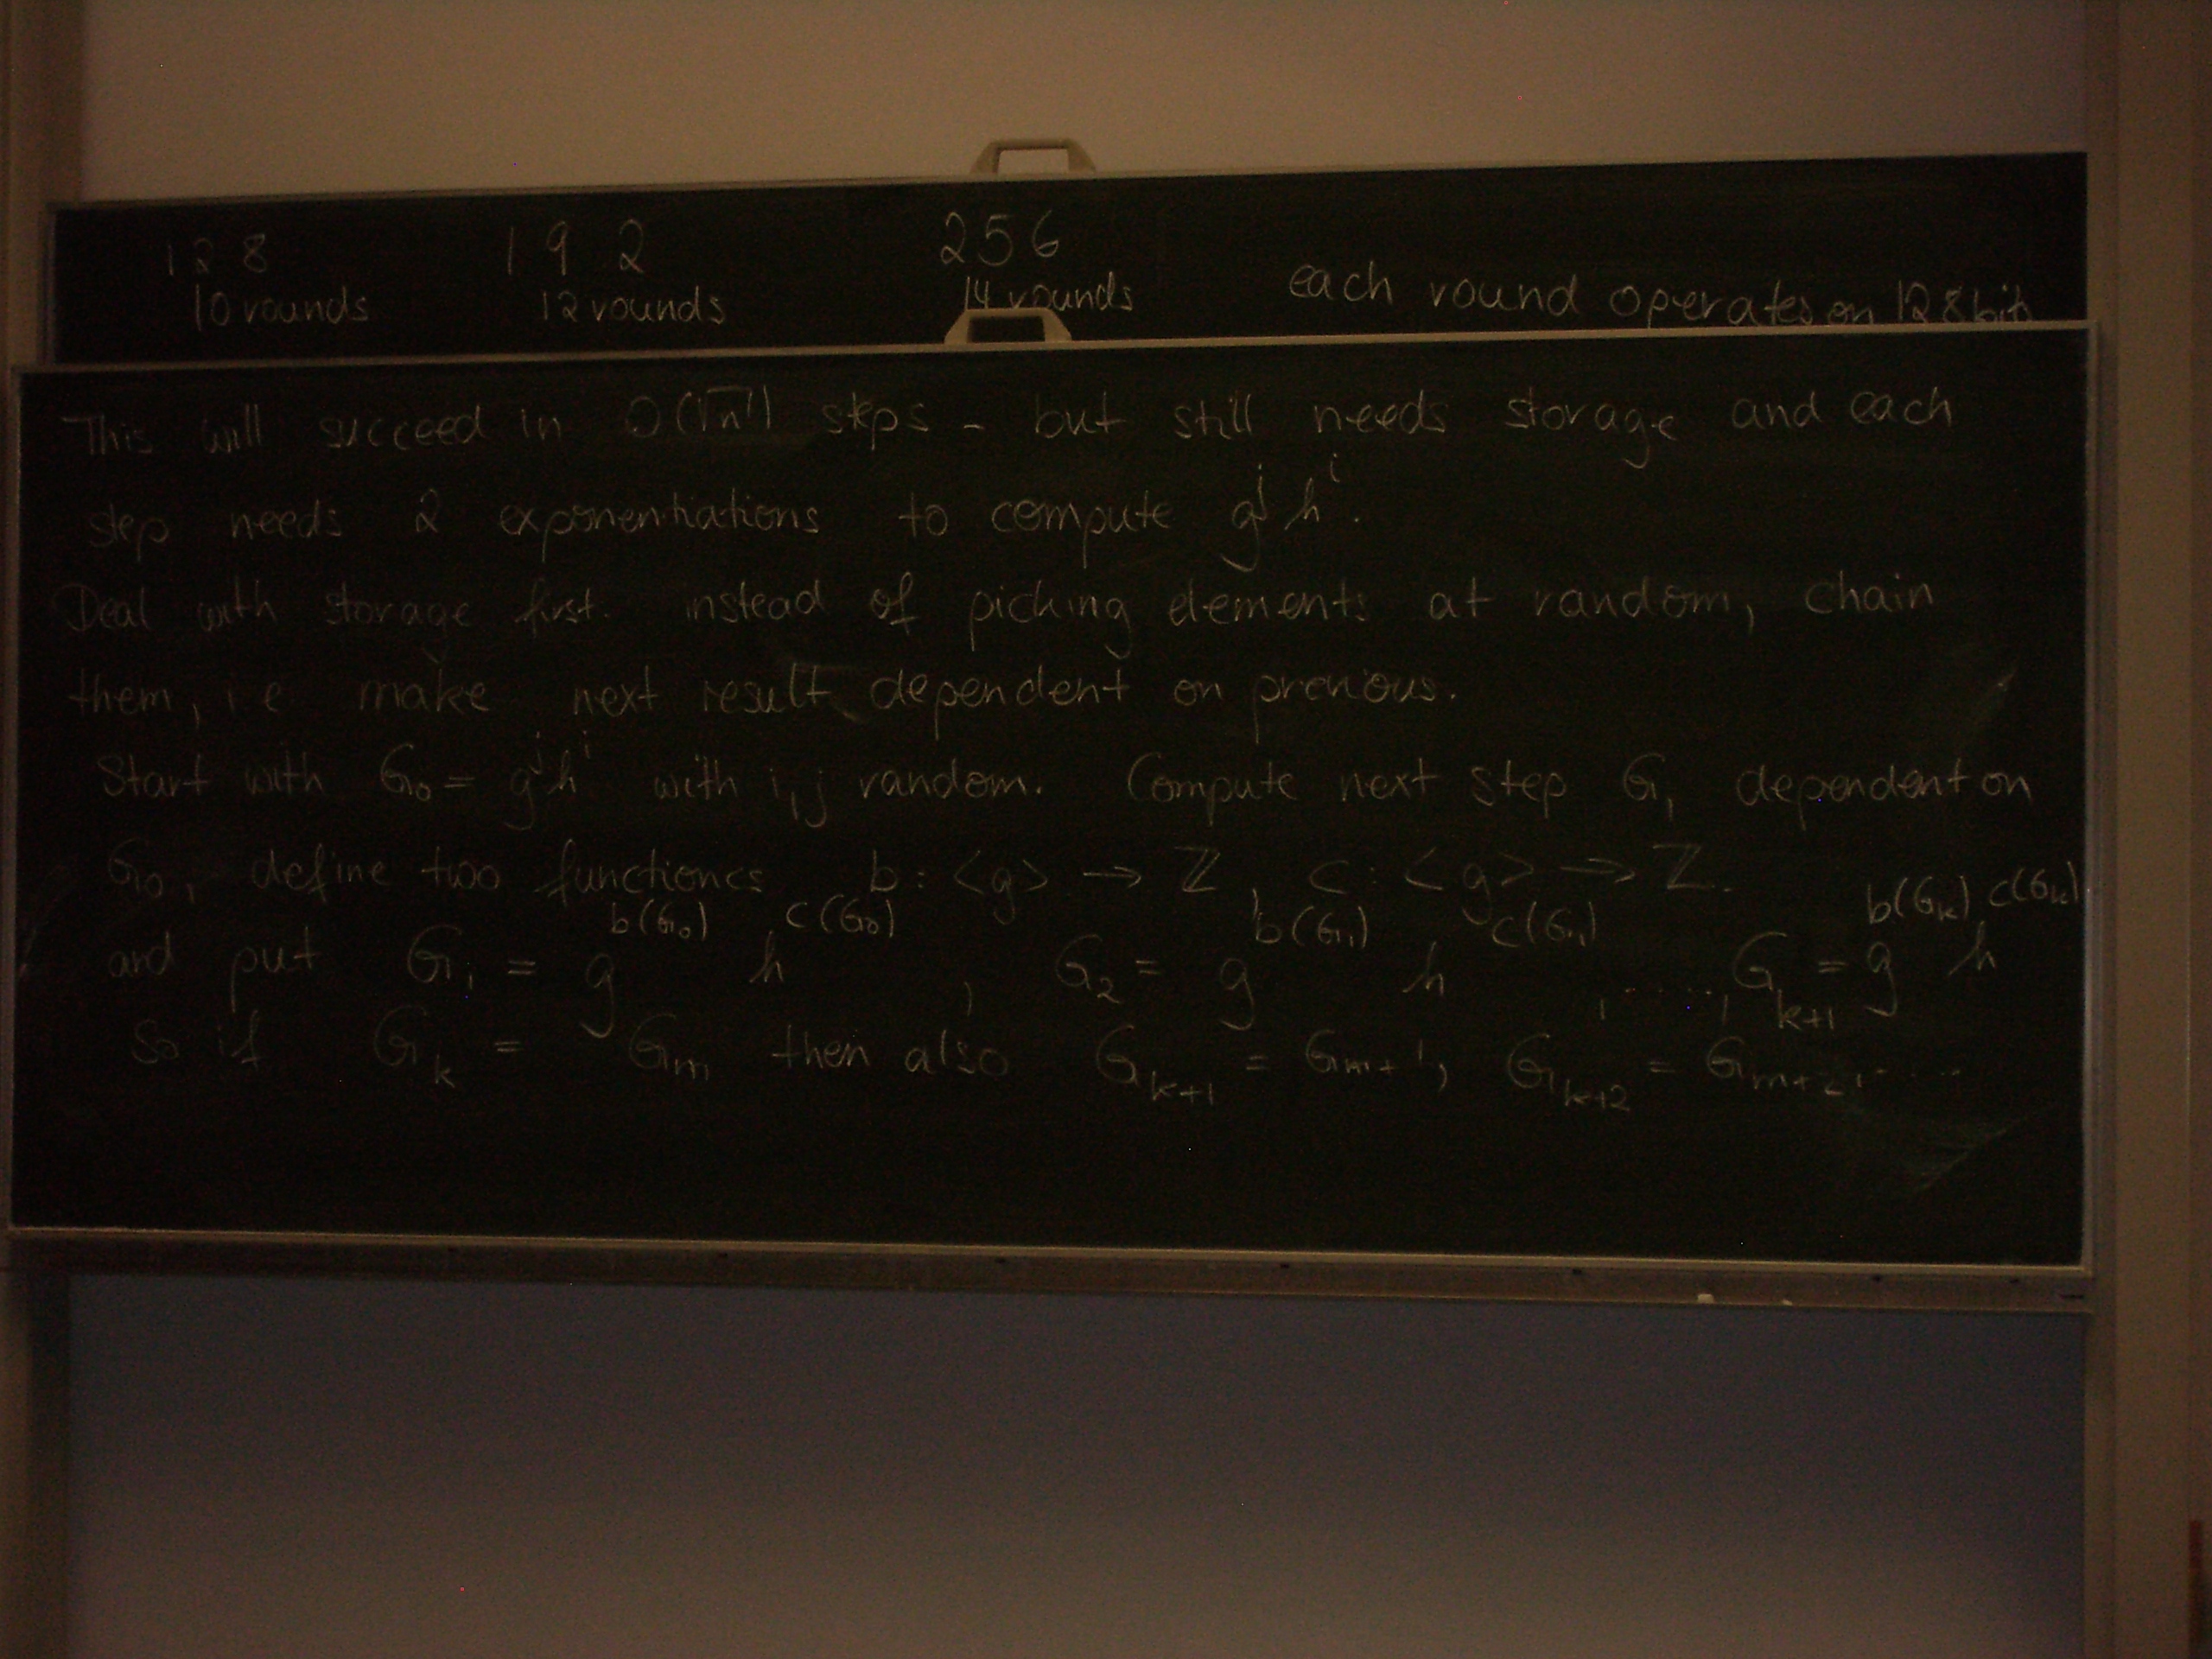 128 192 256
10 rounds 12 rounds 14 rounds each round operates on 128 bits
This will succeed in O(√n) steps - but still needs storage and each
step needs 2 exponentiations to compute g^j h^i.
Deal with storage first. instead of picking elements at random, chain
them, i.e make next result dependent on previous.
Start with G_0 = g^j h^i with i, j random. Compute next step G_1 dependent on
G_0, define two functioncs b: <g> → ℤ, c: <g> → ℤ.
and put G_1 = g^b(G_0) h^c(G_0), G_2 = g^b(G_1) h^c(G_1), ....., G_k+1 = g^b(G_k) h^c(G_k)
So if G_k = G_m then also G_k+1 = G_m+1, G_k+2 = G_m+2, ....